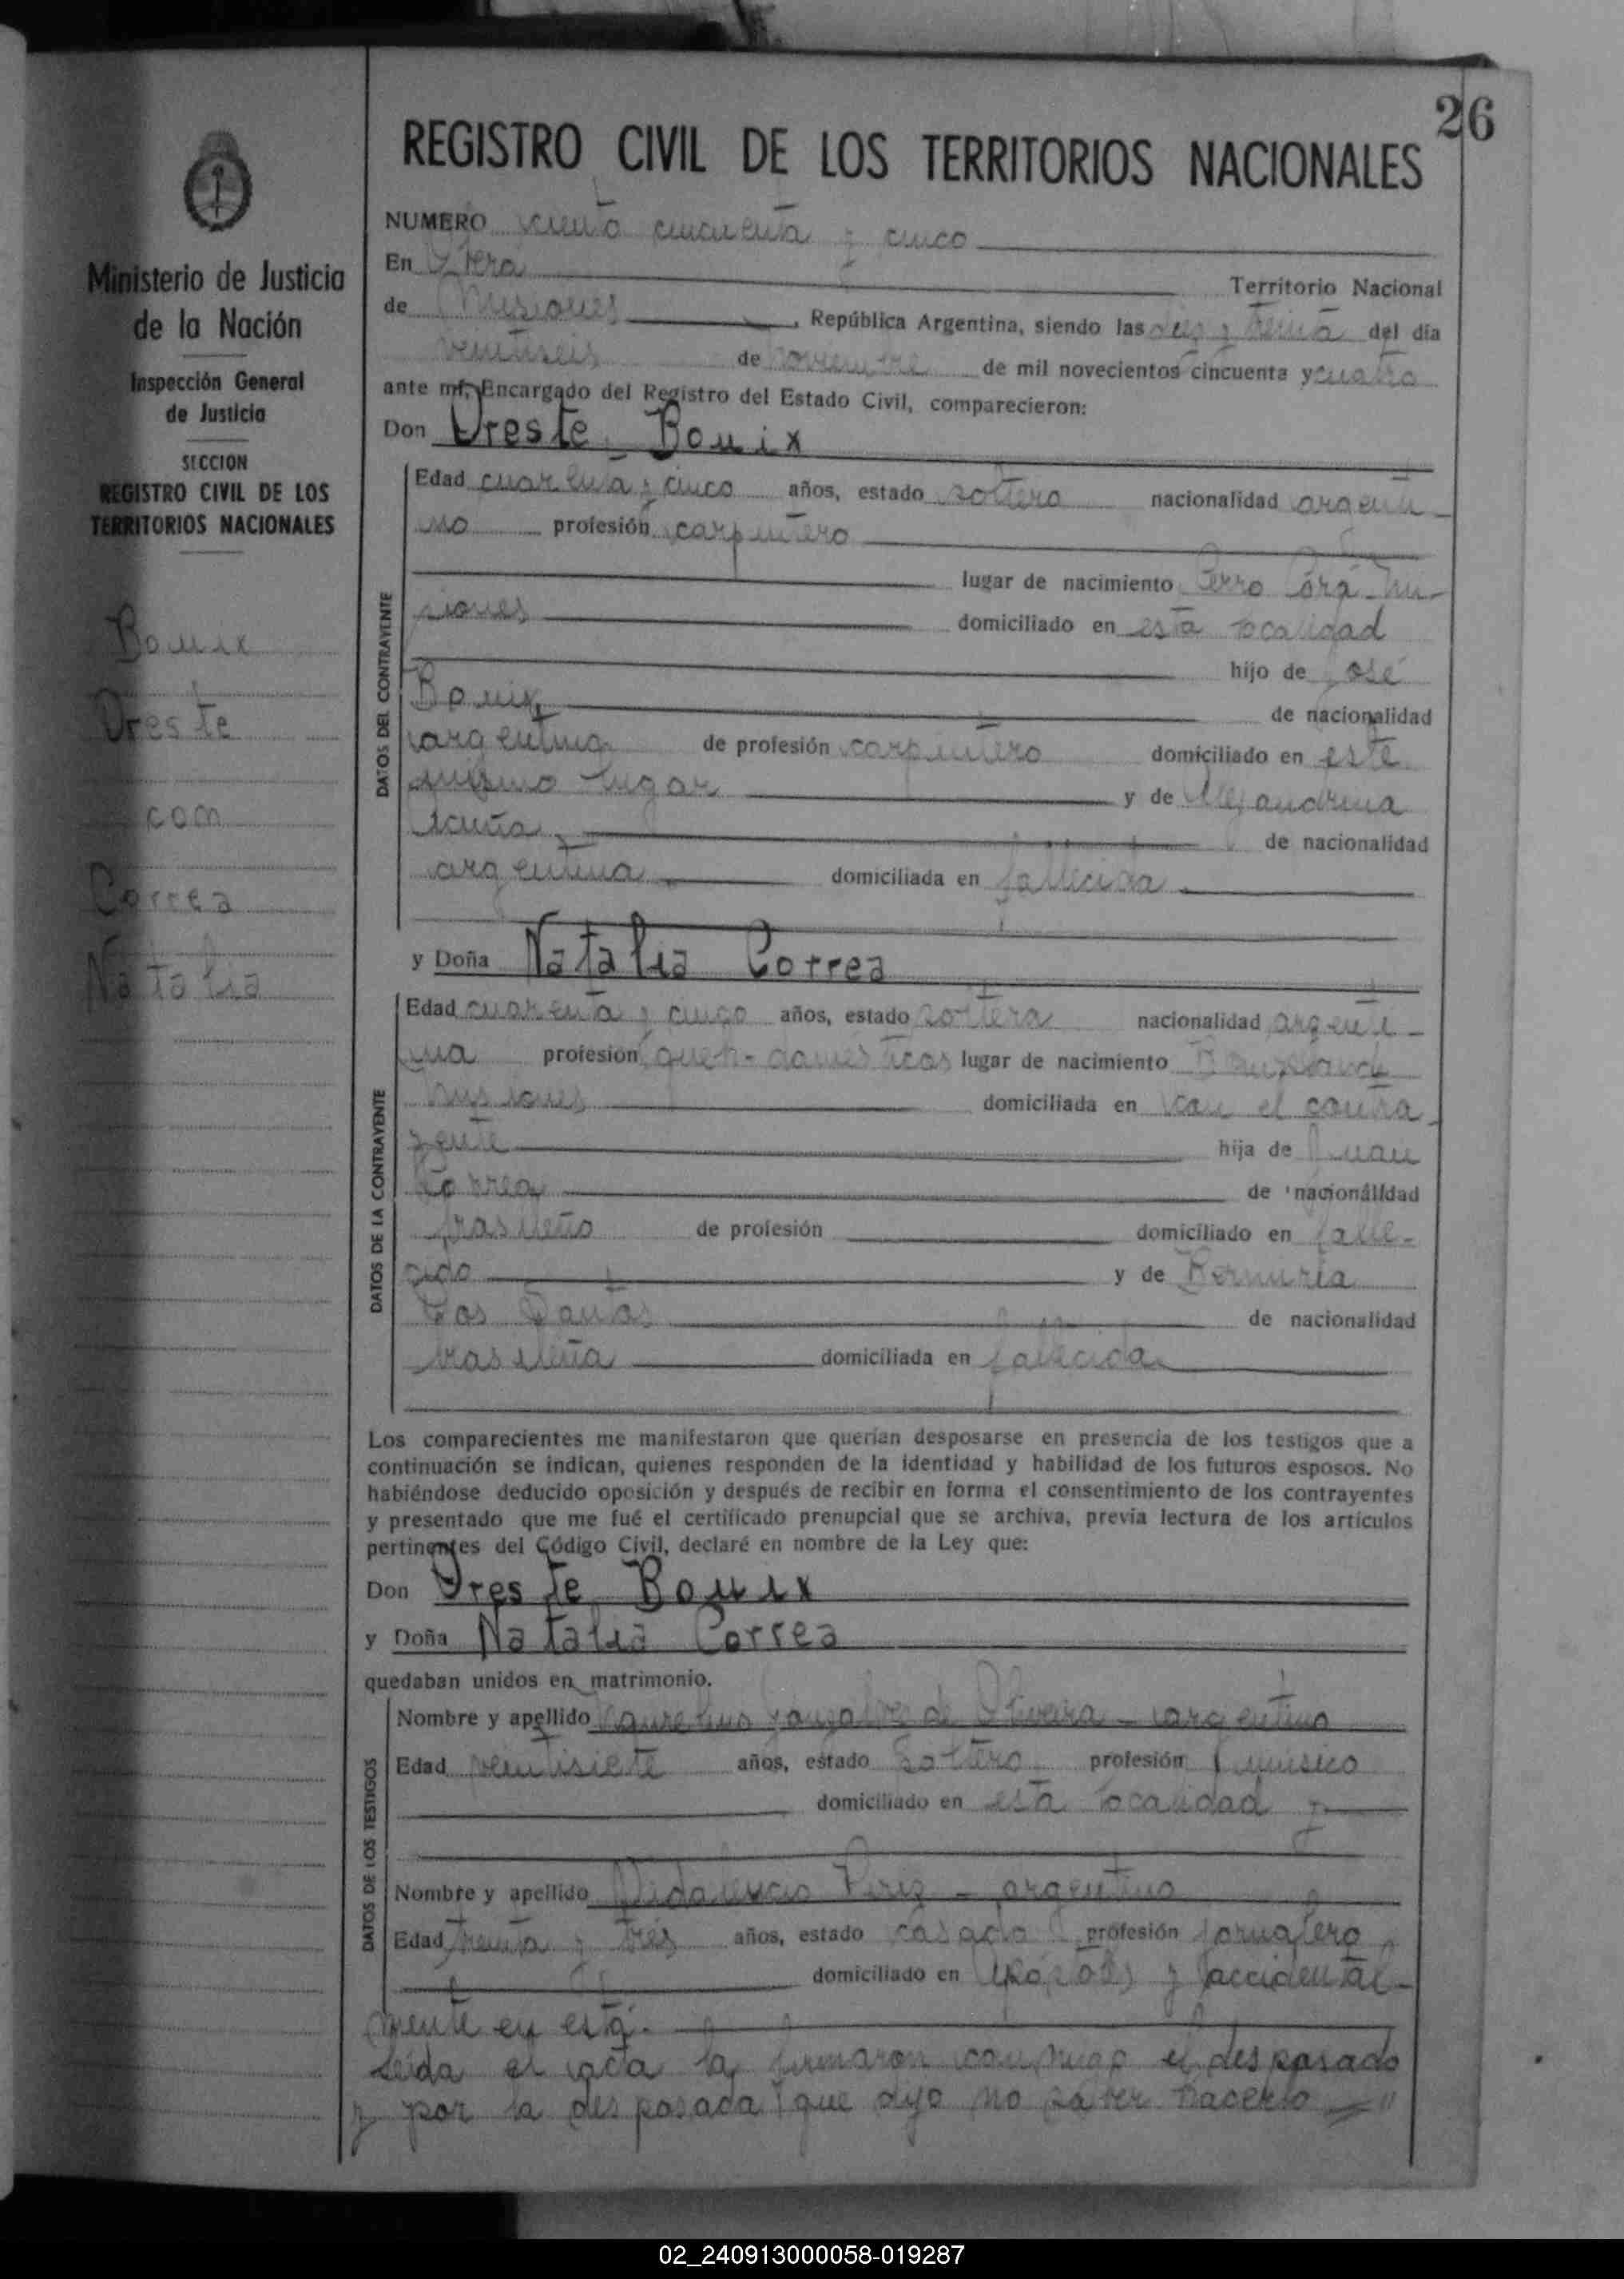 26
REGISTRO CIVIL DE LOS TERRITORIOS NACIONALES
Ministerio de Justicia
de la Nación
Inspección General
de Justicia
SECCION
REGISTRO CIVIL DE LOS
TERRITORIOS NACIONALES
Bouix
Oreste
con
Correa
Natalia
NUMERO ciento cincuenta y cinco
En Territorio Nacional
de Misiones, República Argentina, siendo las diez y treinta del día
veintiseis de noviembre de mil novecientos cincuenta y cuatro
ante mí, Encargado del Registro del Estado Civil, comparecieron:
Don Oreste Bouix
DATOS DEL CONTRAYENTE
Edad cuarenta y cinco años, estado soltero nacionalidad argenti-
no profesión carpintero
lugar de nacimiento Cerro Corá Mi-
siones domiciliado en esta localidad
hijo de José
Bouix, de nacionalidad
argentina de profesión carpintero domiciliado en este
mismo lugar y de Alejandrina
Acuña, de nacionalidad
argentina domiciliada en fallecida
y Doña Natalia Correa
DATOS DE LA CONTRAYENTE
Edad cuarenta y cinco años, estado soltera nacionalidad argenti-
na profesión queh-domésticos lugar de nacimiento
Misiones domiciliada en con el contra
yente hija de Juan
Correa de nacionalidad
brasileño de profesión domiciliado en falle-
cido y de
Dos Santos de nacionalidad
brasileña domiciliada en fallecida
Los comparecientes me manifestaron que querían desposarse en presencia de los testigos que a
continuación se indican, quienes responden de la identidad y habilidad de los futuros esposos. No
habiéndose deducido oposición y después de recibir en forma el consentimiento de los contrayentes
y presentado que me fué el certificado prenupcial que se archiva, previa lectura de los artículos
pertinentes del Código Civil, declaré en nombre de la Ley que:
Don Oreste Bouix
y Doña Natalia Correa
quedaban unidos en matrimonio.
DATOS DE LOS TESTIGOS
Nombre y apellido de Oliveira - argentino
Edad veintisiete años, estado soltero profesión músico
domiciliado en esta localidad y
Nombre y apellido Perez - argentino
Edad treinta y tres años, estado casado profesión jornalero
domiciliado en Apóstoles y accidental-
mente en esta.
Leida el acta la firmaron conmigo el desposado
y por la desposada que dijo no saber hacerlo
02_240913000058-019287